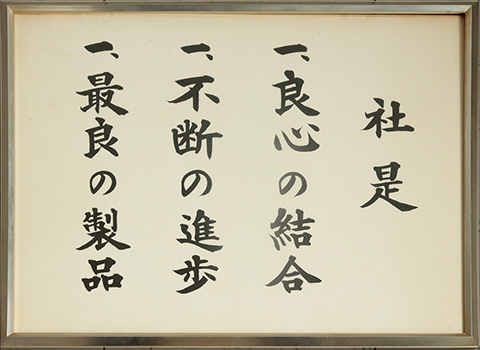 社是
一、良心の結合
一、不断の進歩
一、最良の製品